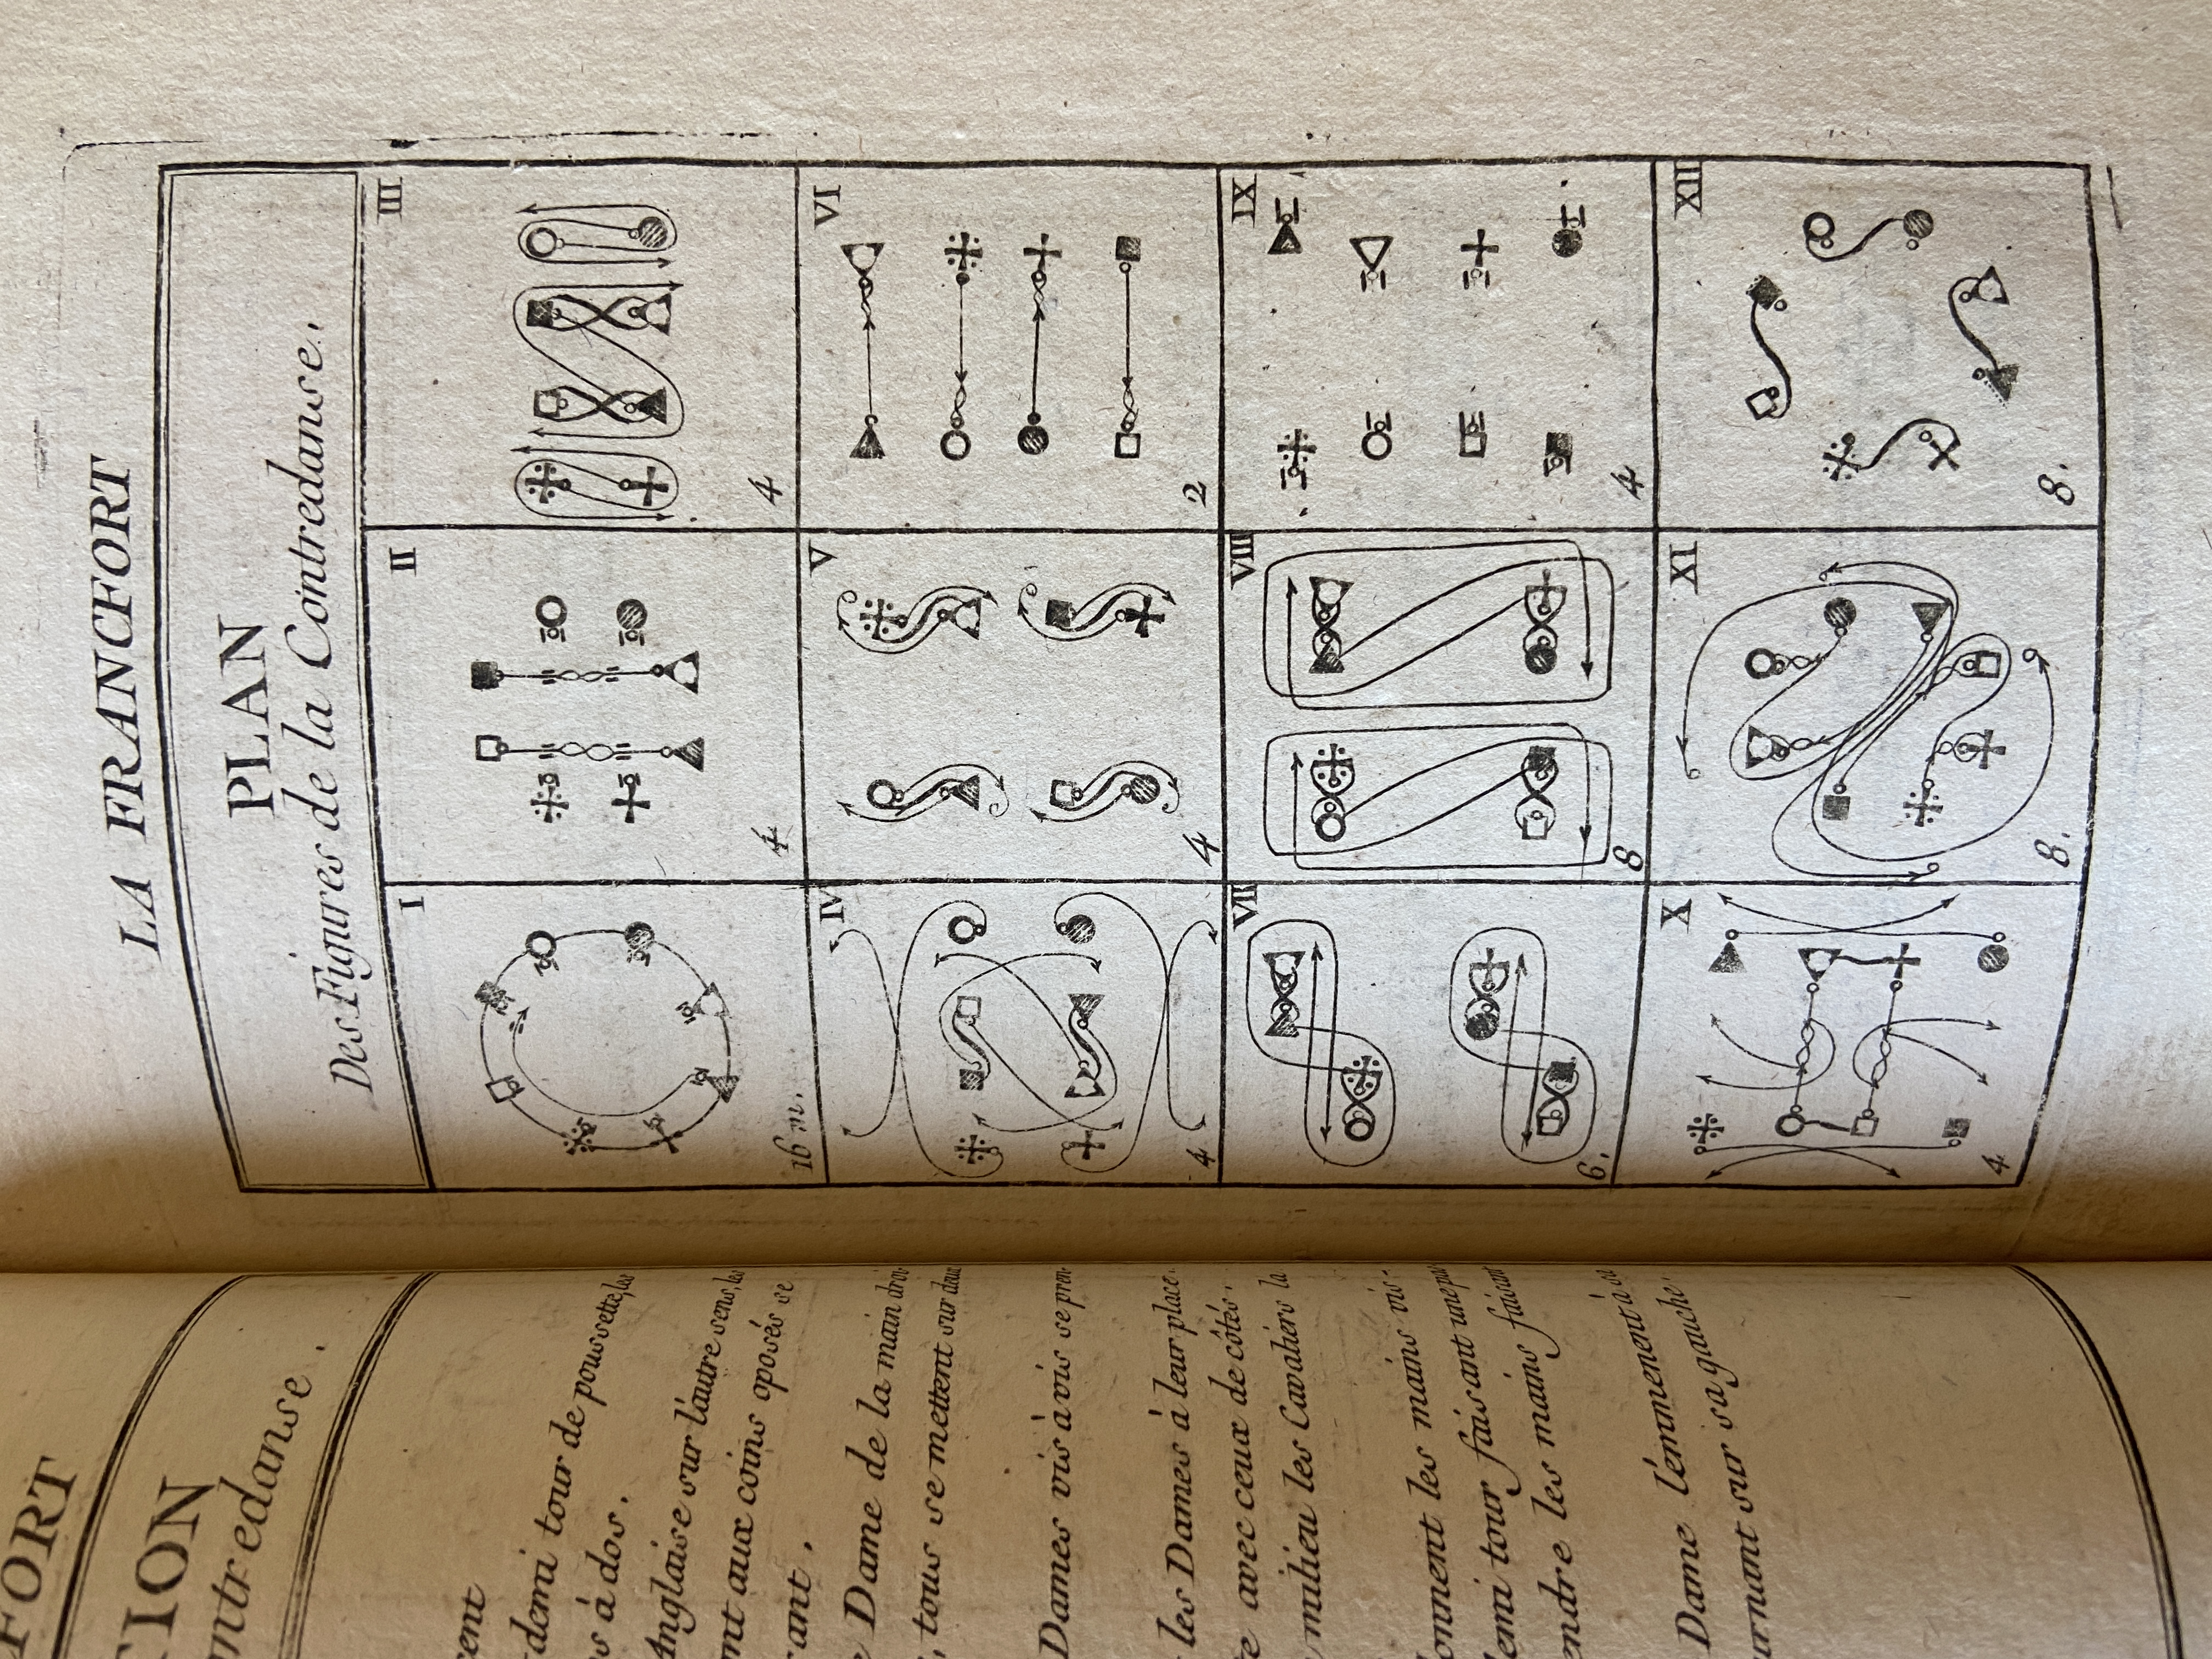 LA FRANCFORT
PLAN
Des Figures de la Contredanse.
I
II
III
16 m.
4
4
IV
V
VI
4
4
2
VII
VIII
IX
6.
8
4
X
XI
XII
4
8.
8.
FORT
TION
ntredanse.
cent
demi tour de poussette, les
s à dos.
Anglaise sur l'autre sens, les
nt aux coins oposés se
rant.
e Dame de la main droi-
, tous se mettent sur deux
Dames vis à vis se pren-
les Dames à leur place.
e avec ceux de côtés.
milieu les Cavaliers la
onnent les mains vis-
emi tour faisant une pas
endre les mains faisant
Dame l'emmenent à sa
urnant sur sa gauche.